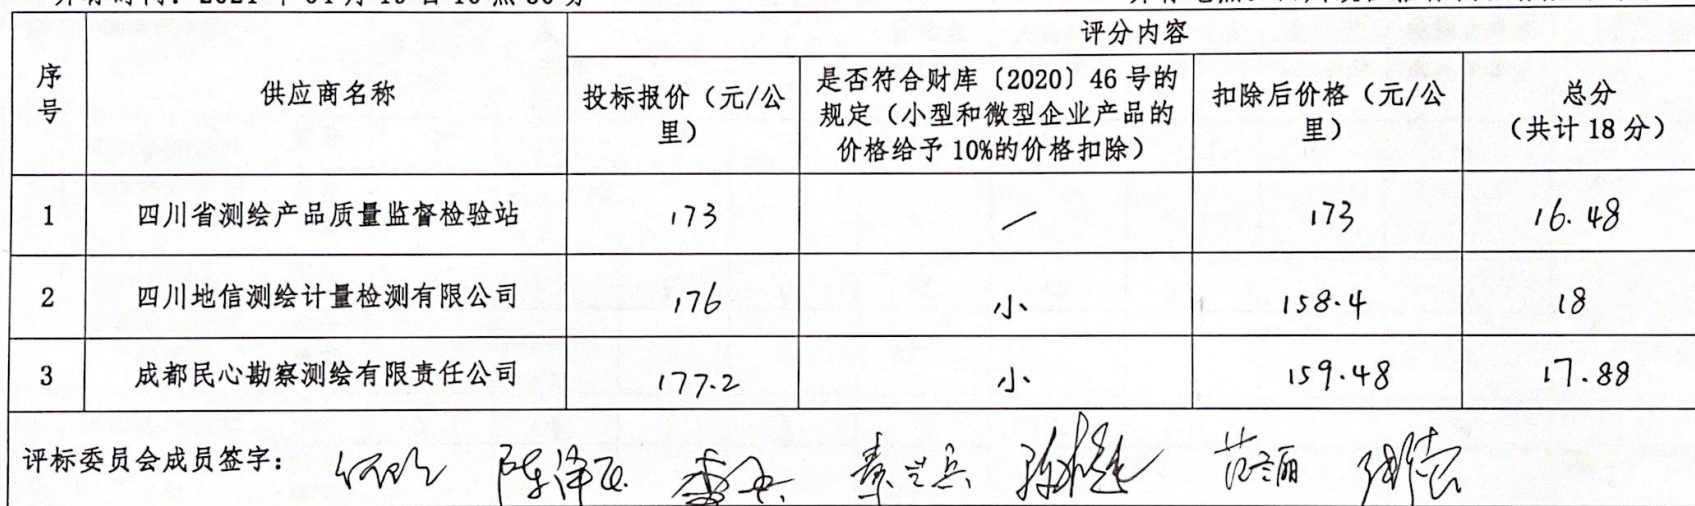 评分内容
序号
供应商名称
投标报价（元/公
里）
是否符合财库〔2020〕46号的
规定（小型和微型企业产品的
价格给予10%的价格扣除）
扣除后价格（元/公
里）
总分
（共计18分）
1 四川省测绘产品质量监督检验站 173 / 173 16.48
2 四川地信测绘计量检测有限公司 176 小 158.4 18
3 成都民心勘察测绘有限责任公司 177.2 小 159.48 17.88
评标委员会成员签字：